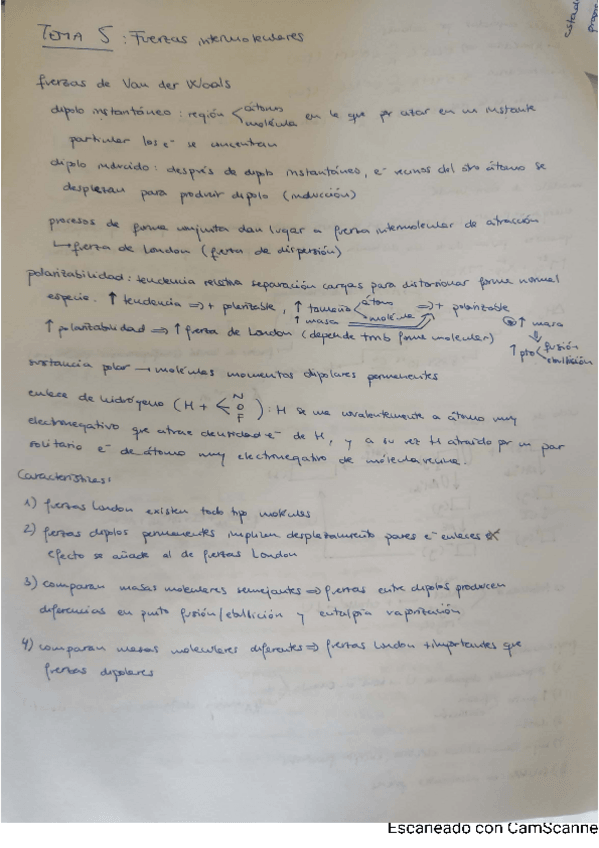 TEMA 5 : Fuerzas intermoleculares
fuerzas de Van der Waals
dipolo instantáneo : región < átomo molécula en la que por azar en un instante
particular los e⁻ se concentran
dipolo inducido : después de dipolo instantáneo, e⁻ vecinos del otro átomo se
desplazan para producir dipolo (inducción)
procesos de forma conjunta dan lugar a fuerza intermolecular de atracción
↳ fuerza de London (fuerza de dispersión)
polarizabilidad : tendencia relativa separación cargas para distorsionar forma normal
especie. ↑ tendencia ⇒ + polarizable, ↑ tamaño < átomo molécula ⇒ + polarizable
↑ masa
↑ polarizabilidad ⇒ ↑ fuerza de London (depende tmb forma molecular)
↑ masa
⇓
↑ pto < fusión ebullición
sustancia polar → moléculas momentos dipolares permanentes
enlace de hidrógeno (H + < N O F ) : H se une covalentemente a átomo muy
electronegativo que atrae densidad e⁻ de H, y a su vez H atraído por un par
solitario e⁻ de átomo muy electronegativo de molécula vecina.
Características:
1) fuerzas London existen todo tipo moléculas
2) fuerzas dipolos permanentes implican desplazamiento pares e⁻ enlaces
efecto se añade al de fuerzas London
3) comparan masas moleculares semejantes ⇒ fuerzas entre dipolos producen
diferencias en punto fusión/ebullición y entalpía vaporización
4) comparan masas moleculares diferentes ⇒ fuerzas London + importantes que
fuerzas dipolares
Escaneado con CamScanne